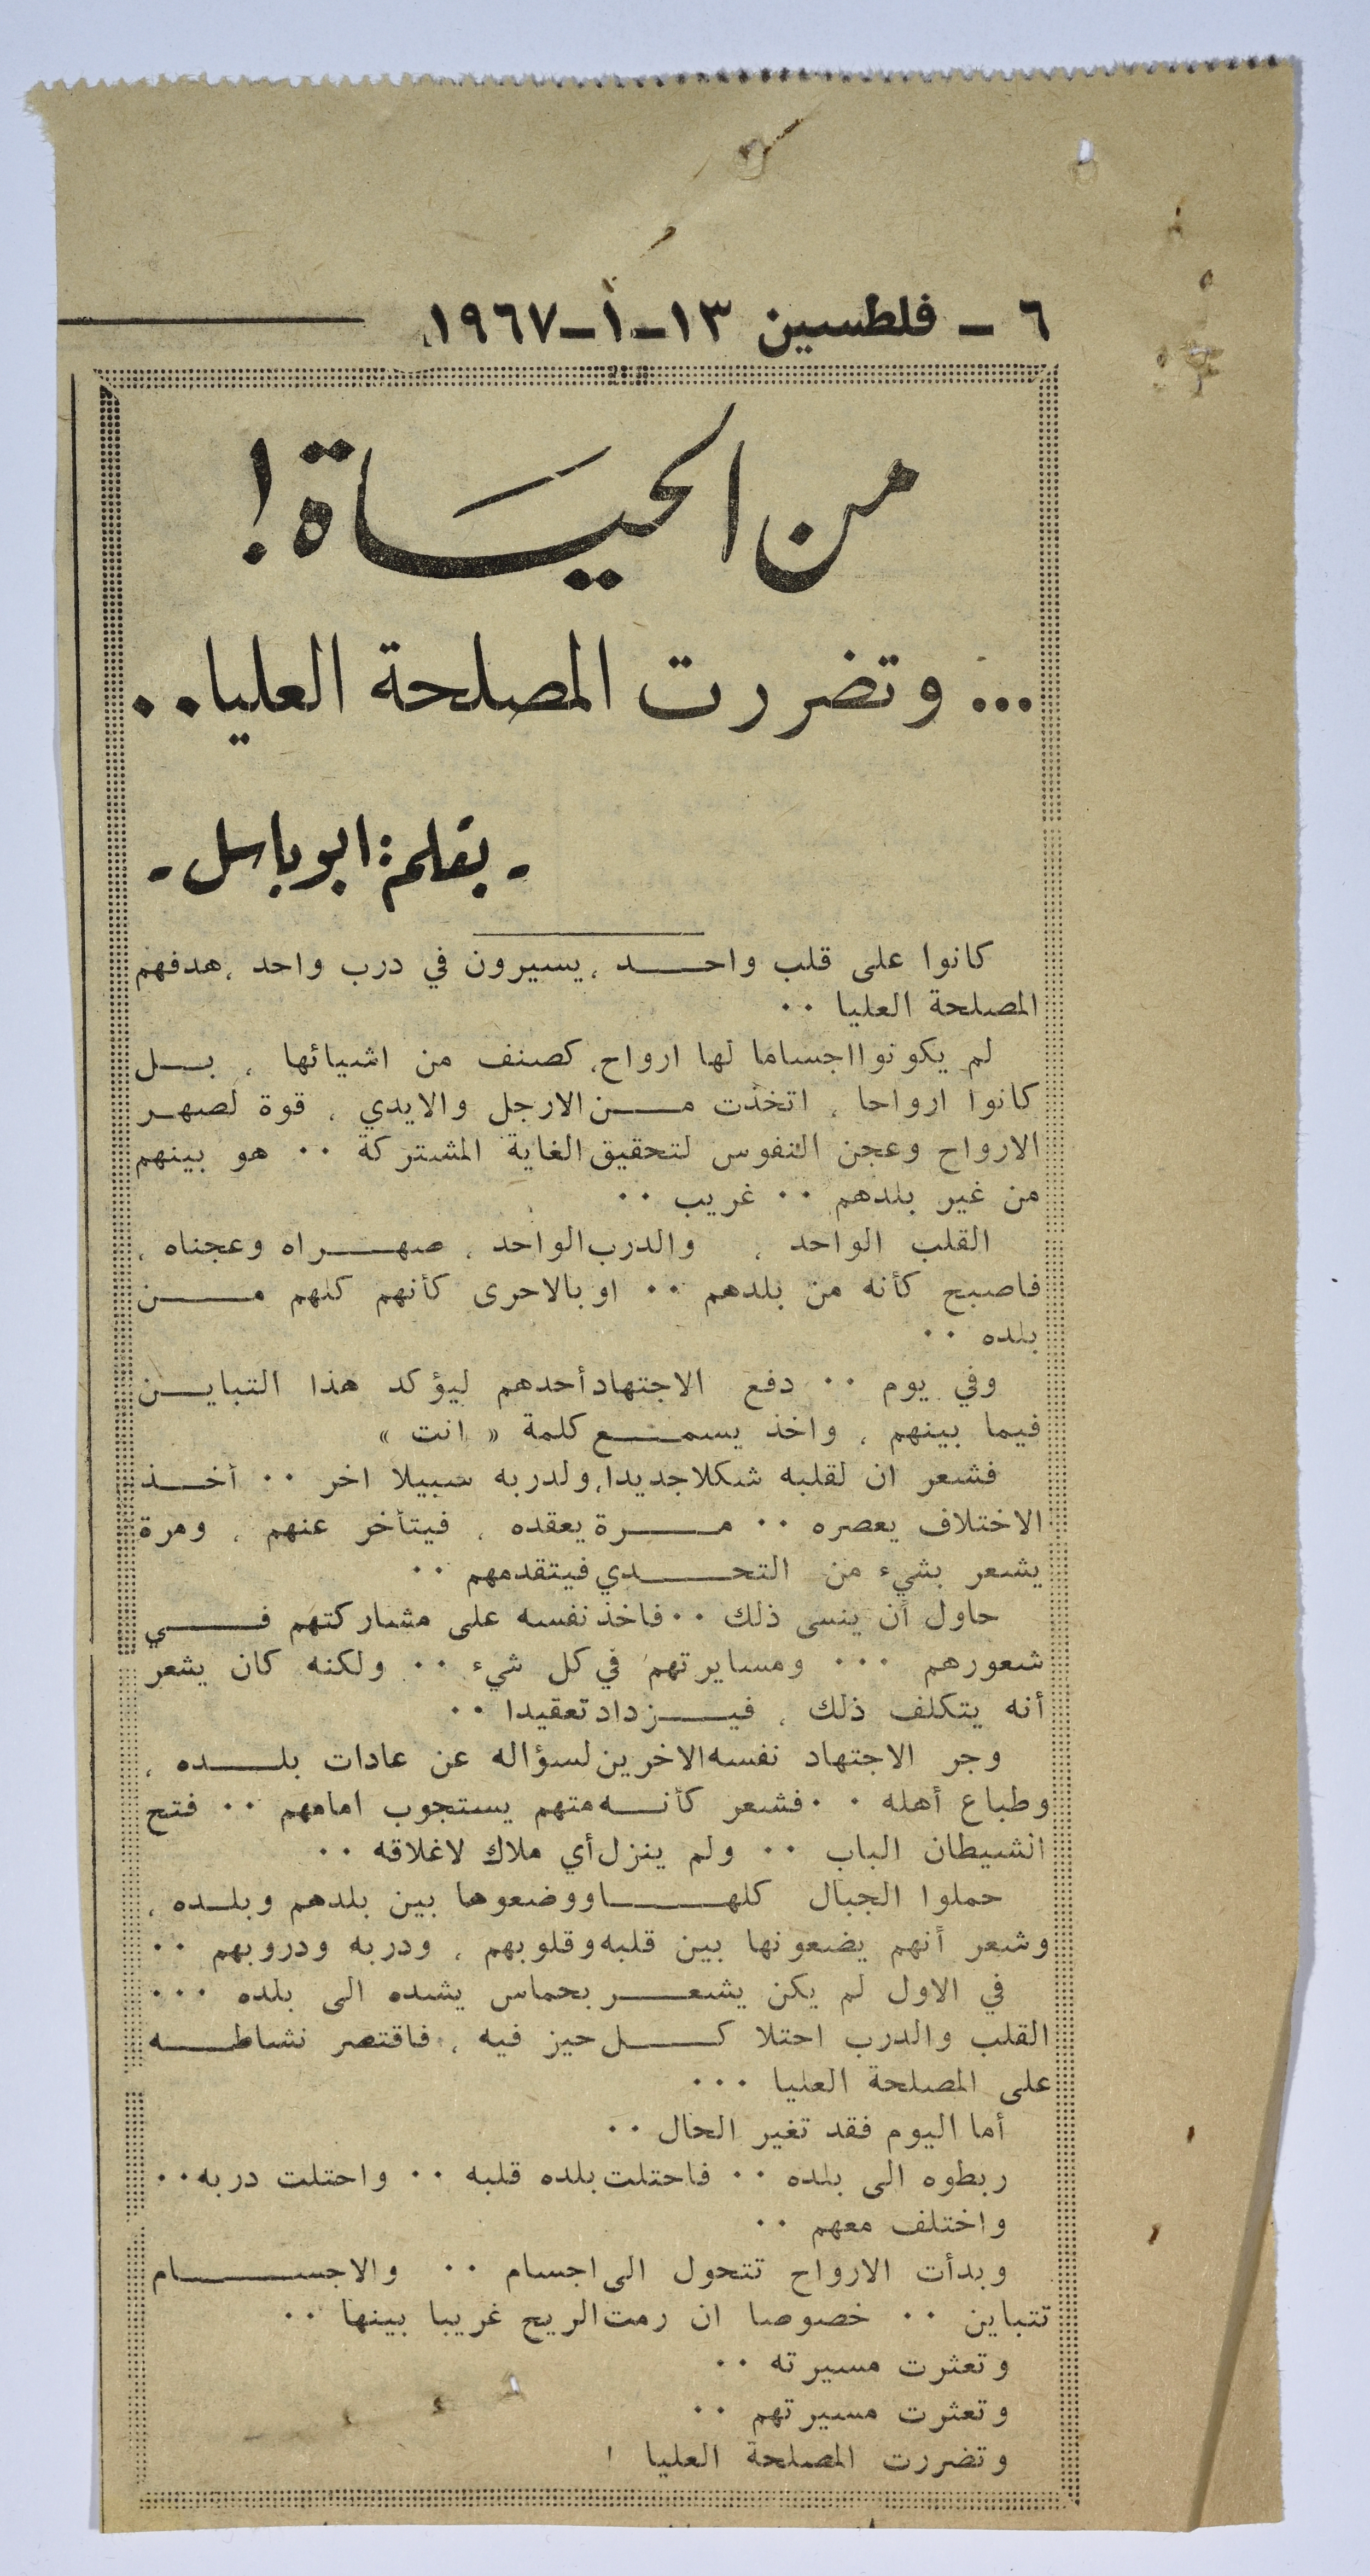 ٦ - فلطسين ١٣-١-١٩٦٧
من الحياة !
... وتضررت المصلحة العليا..
- بقلم: ابو باسل -
كانوا على قلب واحد ، يسيرون في درب واحد ، هدفهم
المصلحة العليا ..
لم يكونوا اجساما لها ارواح ، كصنف من اشيائها ، بل
كانوا ارواحا ، اتخذت من الارجل والايدي ، قوة لصهر
الارواح وعجن النفوس لتحقيق الغاية المشتركة .. هو بينهم
من غير بلدهم .. غريب ..
القلب الواحد ، والدرب الواحد ، صهراه وعجناه ،
فاصبح كأنه من بلدهم .. او بالاحرى كأنهم كلهم من
بلده ..
وفي يوم .. دفع الاجتهاد أحدهم ليؤكد هذا التباين
فيما بينهم ، واخذ يسمع كلمة « انت »
فشعر ان لقلبه شكلا جديدا ، ولدربه سبيلا اخر .. أخذ
الاختلاف يعصره .. مرة يعقده ، فيتأخر عنهم ، ومرة
يشعر بشيء من التحدي فيتقدمهم ..
حاول أن ينسى ذلك .. فاخذ نفسه على مشاركتهم في
شعورهم ... ومسايرتهم في كل شيء .. ولكنه كان يشعر
أنه يتكلف ذلك ، فيزداد تعقيدا ..
وجر الاجتهاد نفسه الاخرين لسؤاله عن عادات بلده ،
وطباع أهله .. فشعر كأنه متهم يستجوب امامهم .. فتح
الشيطان الباب .. ولم ينزل أي ملاك لاغلاقه ..
حملوا الجبال كلها ووضعوها بين بلدهم وبلده ،
وشعر أنهم يضعونها بين قلبه وقلوبهم ، ودربه ودروبهم ..
في الاول لم يكن يشعر بحماس يشده الى بلده ...
القلب والدرب احتلا كل حيز فيه ، فاقتصر نشاطه
على المصلحة العليا ...
أما اليوم فقد تغير الحال ..
ربطوه الى بلده .. فاحتلت بلده قلبه .. واحتلت دربه ..
واختلف معهم ..
وبدأت الارواح تتحول الى اجسام .. والاجسام
تتباين .. خصوصا ان رمت الريح غريبا بينها ..
وتعثرت مسيرته ..
وتعثرت مسيرتهم ..
وتضررت المصلحة العليا !